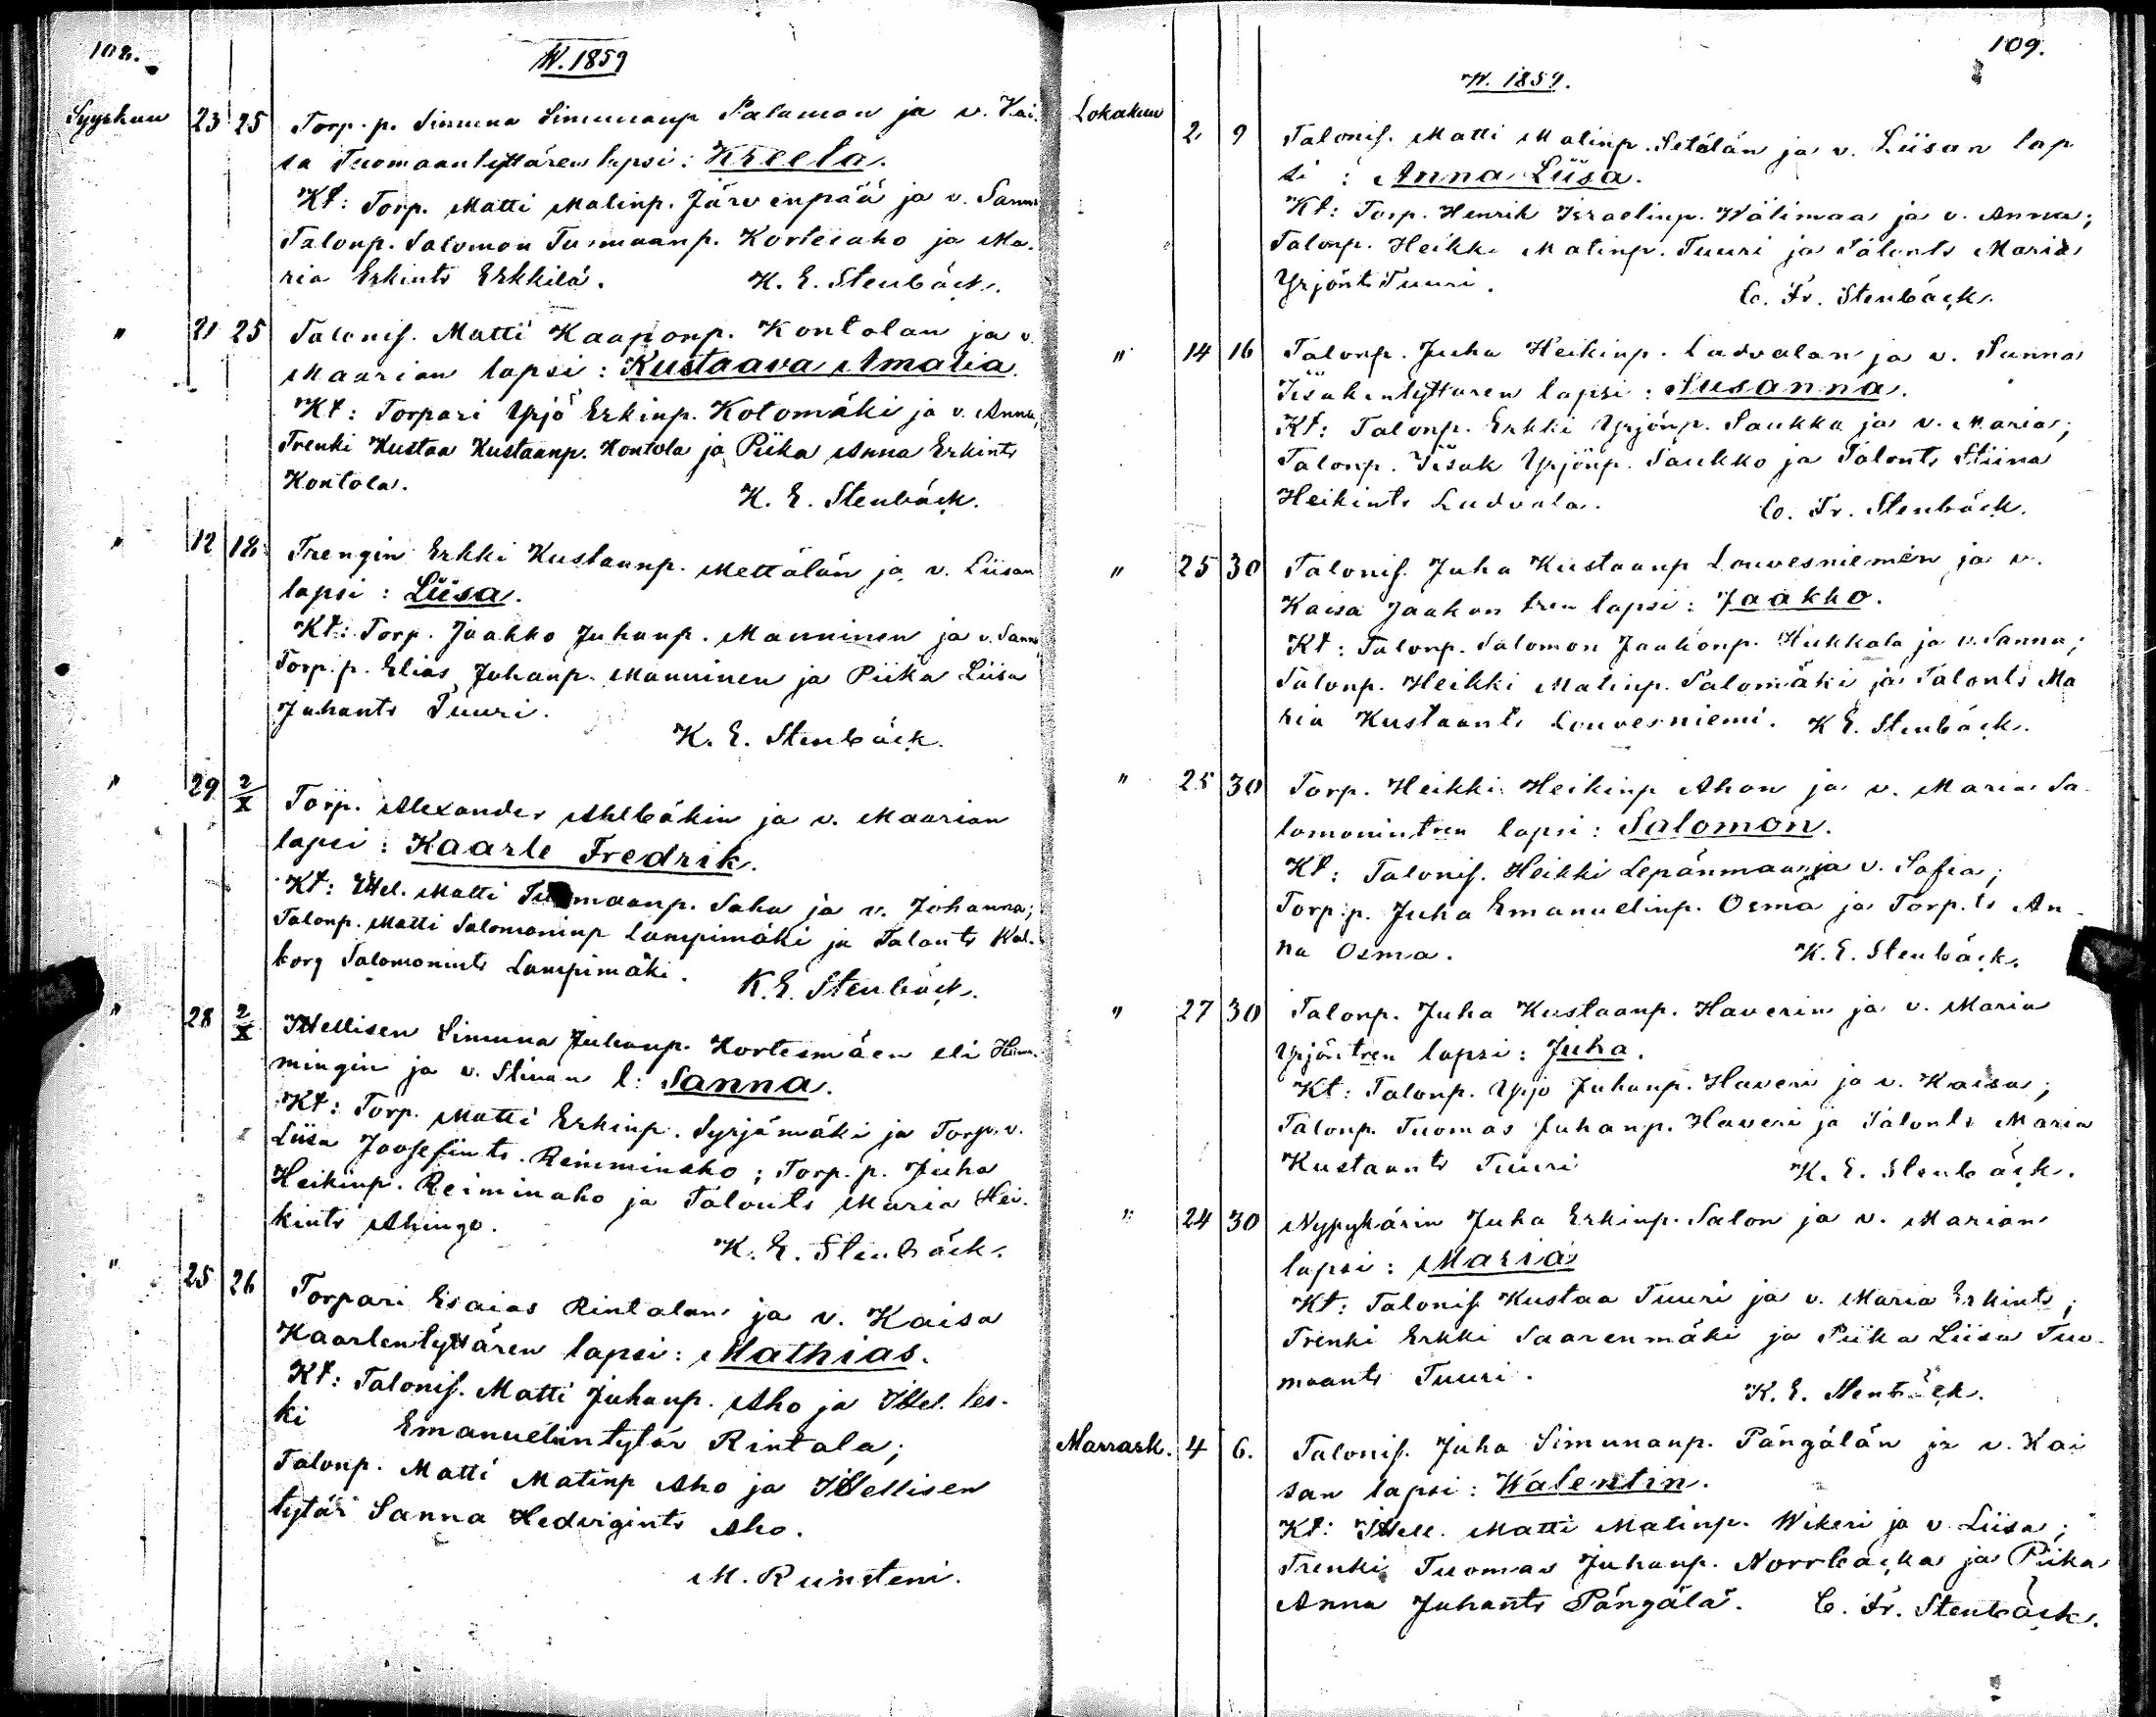 108.
W. 1859
Syyskuu 23 25 Torp. p. Simuna Simunanp Salamon ja v. Kai-
sa Tuomaantyttären lapsi: Kreeta.
Kt: Torp. Matti Matinp. Järvenpää ja v. Sanna
Talonp. Salomon Tuomaanp. Kortesaho ja Ma-
ria Erkints Erkkilä. K. E. Stenbäck.
" 21 25 Talonis. Matti Kaaponp. Kontolan ja v.
Maarian lapsi: Kustaava Amalia.
Kt: Torpari Yrjö Erkinp. Kotomäki ja v. Anna,
Trenki Kustaa Kustaanp. Kontola ja Piika Anna Erkints
Kontola. K. E. Stenbäck.
" 12 18 Trengin Erkki Kustaanp. Mettälän ja v. Liisan
lapsi: Liisa.
Kt: Torp. Jaakko Juhanp. Manninen ja v. Sanna
Torp. p. Elias Juhanp. Manninen ja Piika Liisa
Juhants Tuuri.
K. E. Stenbäck.
" 29 2/X Torp. Alexander Ahlbäkin ja v. Maarian
lapsi: Kaarle Fredrik.
Kt: Itsel. Matti Tuomaanp. Saha ja v. Johanna;
Talonp. Matti Salomoninp Lampimäki ja Talonts Wal-
borg Salomonints Lampimäki. K. E. Stenbäck.
" 28 2/X Itsellisen Simuna Juhanp. Kortesmäen eli Hem-
mingin ja v. Stiinan l: Sanna.
Kt: Torp. Matti Erkinp. Syrjämäki ja Torp. v.
Liisa Joosefints. Reiminaho; Torp. p. Juha
Heikinp. Reiminaho ja Talonts Maria Hei-
kints Ahingo.
K. E. Stenbäck.
" 25 26 Torpari Esaias Rintalan ja v. Kaisa
Kaarlentyttären lapsi: Mathias.
Kt: Talonis. Matti Juhanp. Aho ja Itsel. les-
ki Emanuelintytär Rintala;
Talonp. Matti Matinp Aho ja Itsellisen
tytär Sanna Hedvigints Aho.
M. Runsteni.
109.
W. 1859.
Lokakuu 2 9 Talonis. Matti Matinp. Setälän ja v. Liisan lap
si: Anna Liisa.
Kt: Torp. Henrik Israelinp. Wälimaa ja v. Anna;
Talonp. Heikki Matinp. Tuuri ja Talonts Maria
Yrjönts Tuuri. C. Fr. Stenbäck.
" 14 16 Talonp. Juha Heikinp. Ludvalan ja v. Sanna
Iisakintyttären lapsi: Susanna.
Kt: Talonp. Erkki Yrjönp. Saukko ja v. Maria;
Talonp. Iisak Yrjönp. Saukko ja Talonts Stiina
Heikints Ludvala. C. Fr. Stenbäck.
" 25 30 Talonis. Juha Kustaanp Louvesniemen ja v.
Kaisa Jaakontren lapsi: Jaakko.
Kt: Talonp. Salomon Jaakonp. Hukkala ja v. Sanna;
Talonp. Heikki Matinp. Salomäki ja Talonts Ma
ria Kustaants Louvesniemi. K. E. Stenbäck.
" 25 30 Torp. Heikki Heikinp Ahon ja v. Maria Sa-
lomonintren lapsi: Salomon.
Kt: Talonis. Heikki Lepänmaa ja v. Sofia;
Torp. p. Juha Emanuelinp. Osma ja Torp. ts An-
na Osma. K. E. Stenbäck.
" 27 30 Talonp. Juha Kustaanp. Haverin ja v. Maria
Yrjöntren lapsi: Juha.
Kt: Talonp. Yrjö Juhanp. Haveri ja v. Kaisa;
Talonp. Tuomas Juhanp. Haveri ja Talonts Maria
Kustaants Tuuri K. E. Stenbäck.
" 24 30 Nypykärin Juha Erkinp. Salon ja v. Marian
lapsi: Maria
Kt: Talonis Kustaa Tuuri ja v. Maria Erkints;
Trenki Erkki Saarenmäki ja Piika Liisa Tuo-
maants Tuuri. K. E. Stenbäck.
Marrask. 4 6. Talonis. Juha Simunanp. Pängälän ja v. Kai
san lapsi: Walentin.
Kt: Itsell. Matti Matinp. Wikeri ja v. Liisa;
Trenki Tuomas Juhanp. Norrbacka ja Piika
Anna Juhants Pängälä. C. Fr. Stenbäck.